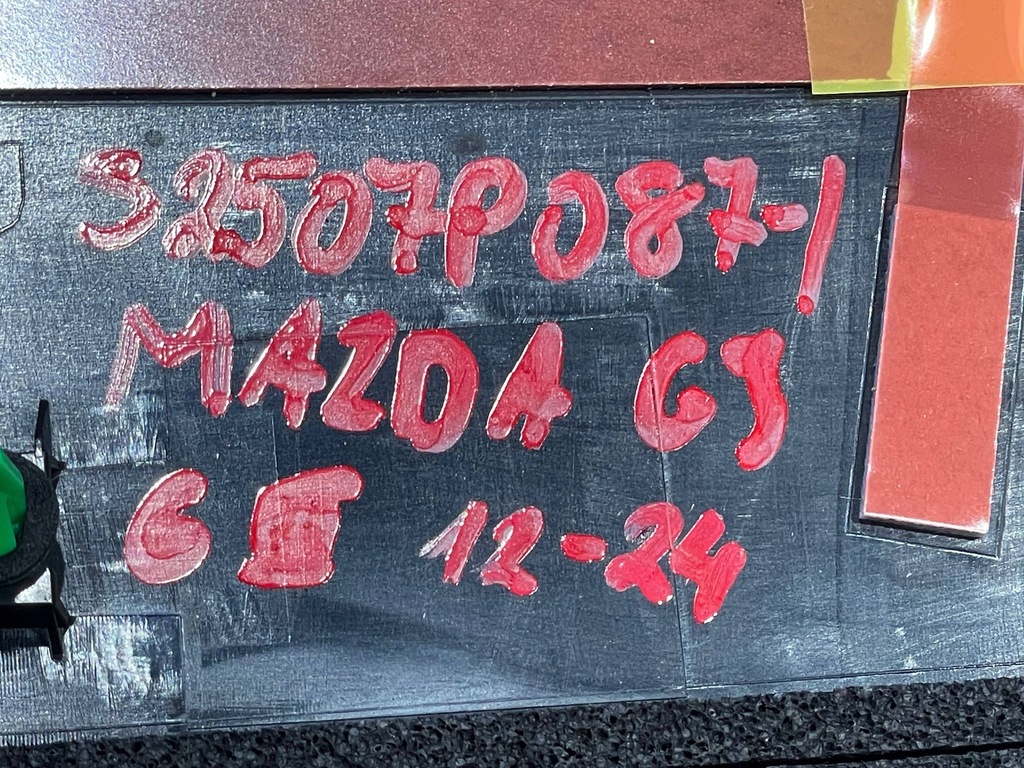 S2507P087-1
MAZDA GJ
6 III 12-24